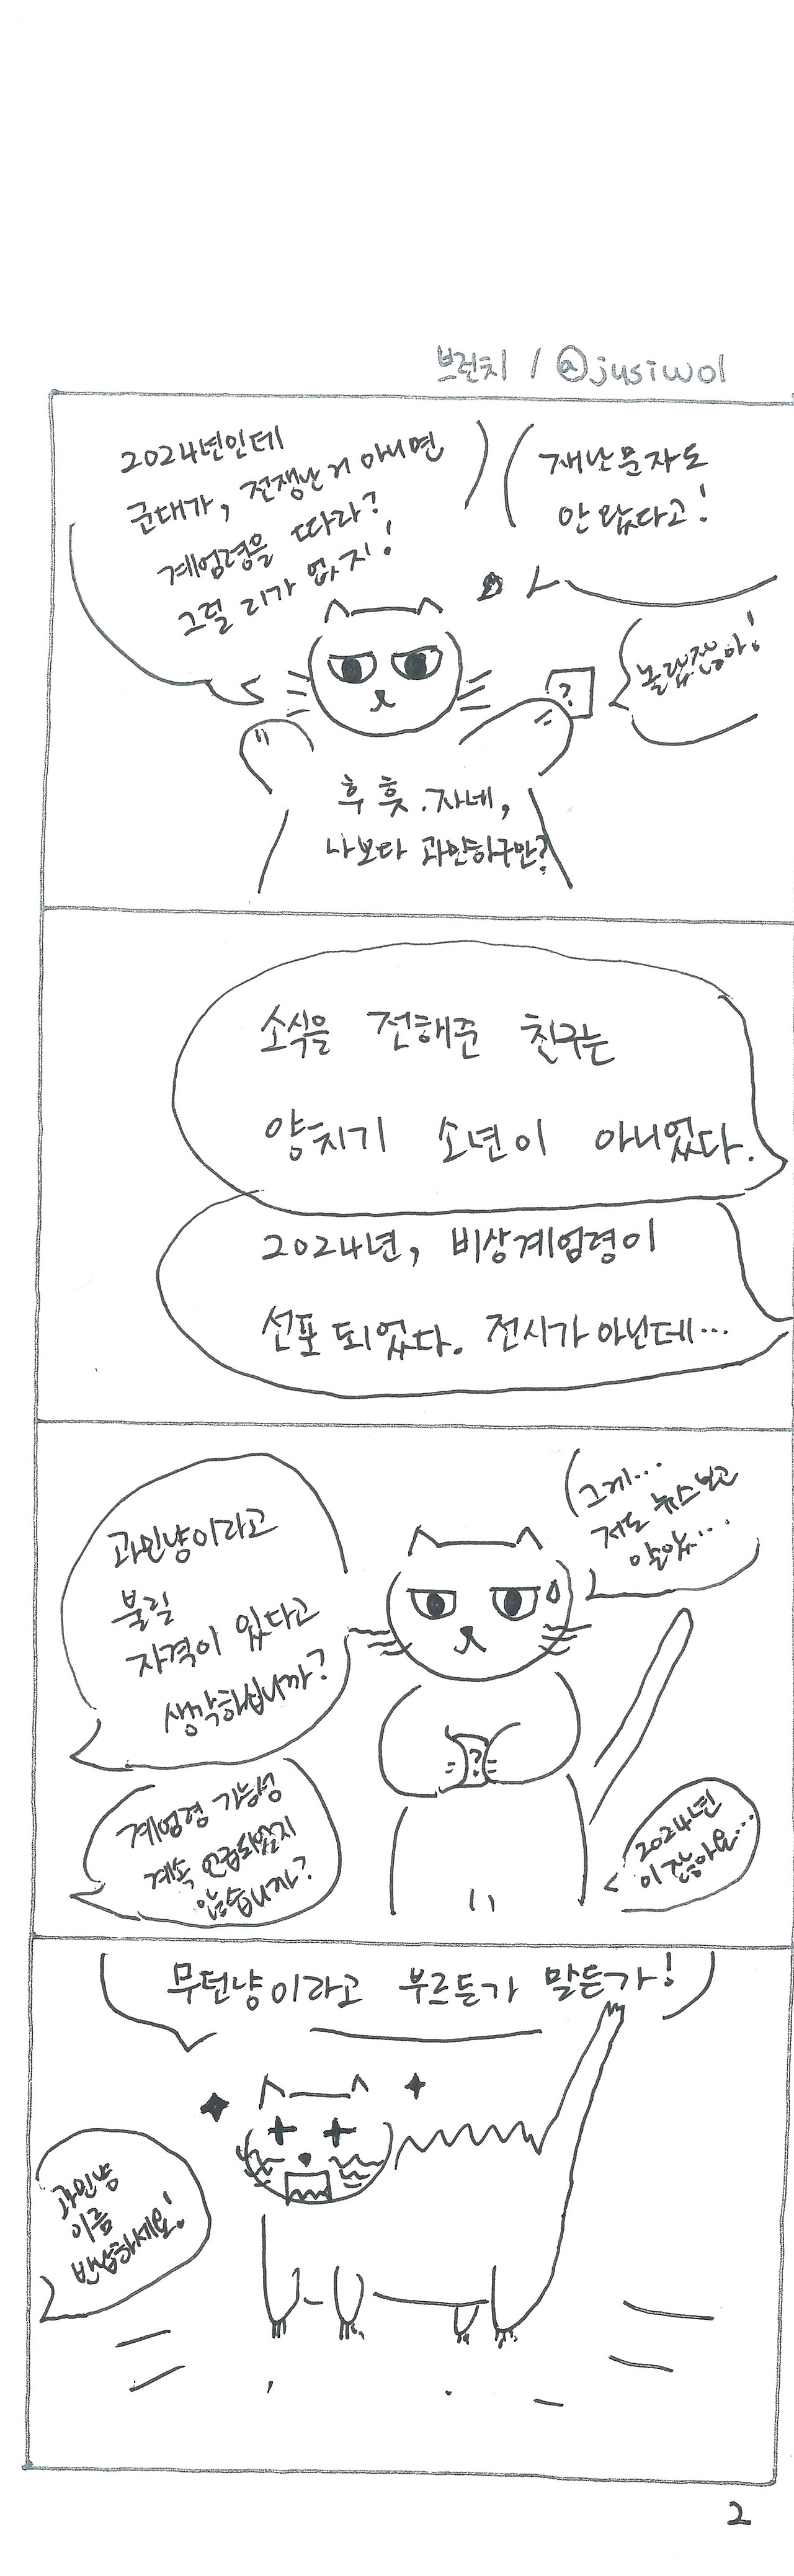 브런치 / @jusiwol
2024년인데
군대가, 전쟁난 거 아니면
계엄령을 따라?
그럴 리가 없지!
재난문자도
안 왔다고!
놀랍잖아!
?
후훗. 자네,
나보다 과민하구만?
소식을 전해준 친구는
양치기 소년이 아니었다.
2024년, 비상계엄령이
선포 되었다. 전시가 아닌데…
과민냥이라고
불릴
자격이 있다고
생각하십니까?
그게…
저도 뉴스보고
알았…
?
계엄령 가능성
계속 언급되었지
않습니까?
2024년
이잖아요…
무던냥이라고 부르든가 말든가!
과민냥
이름
반납하세요!
2